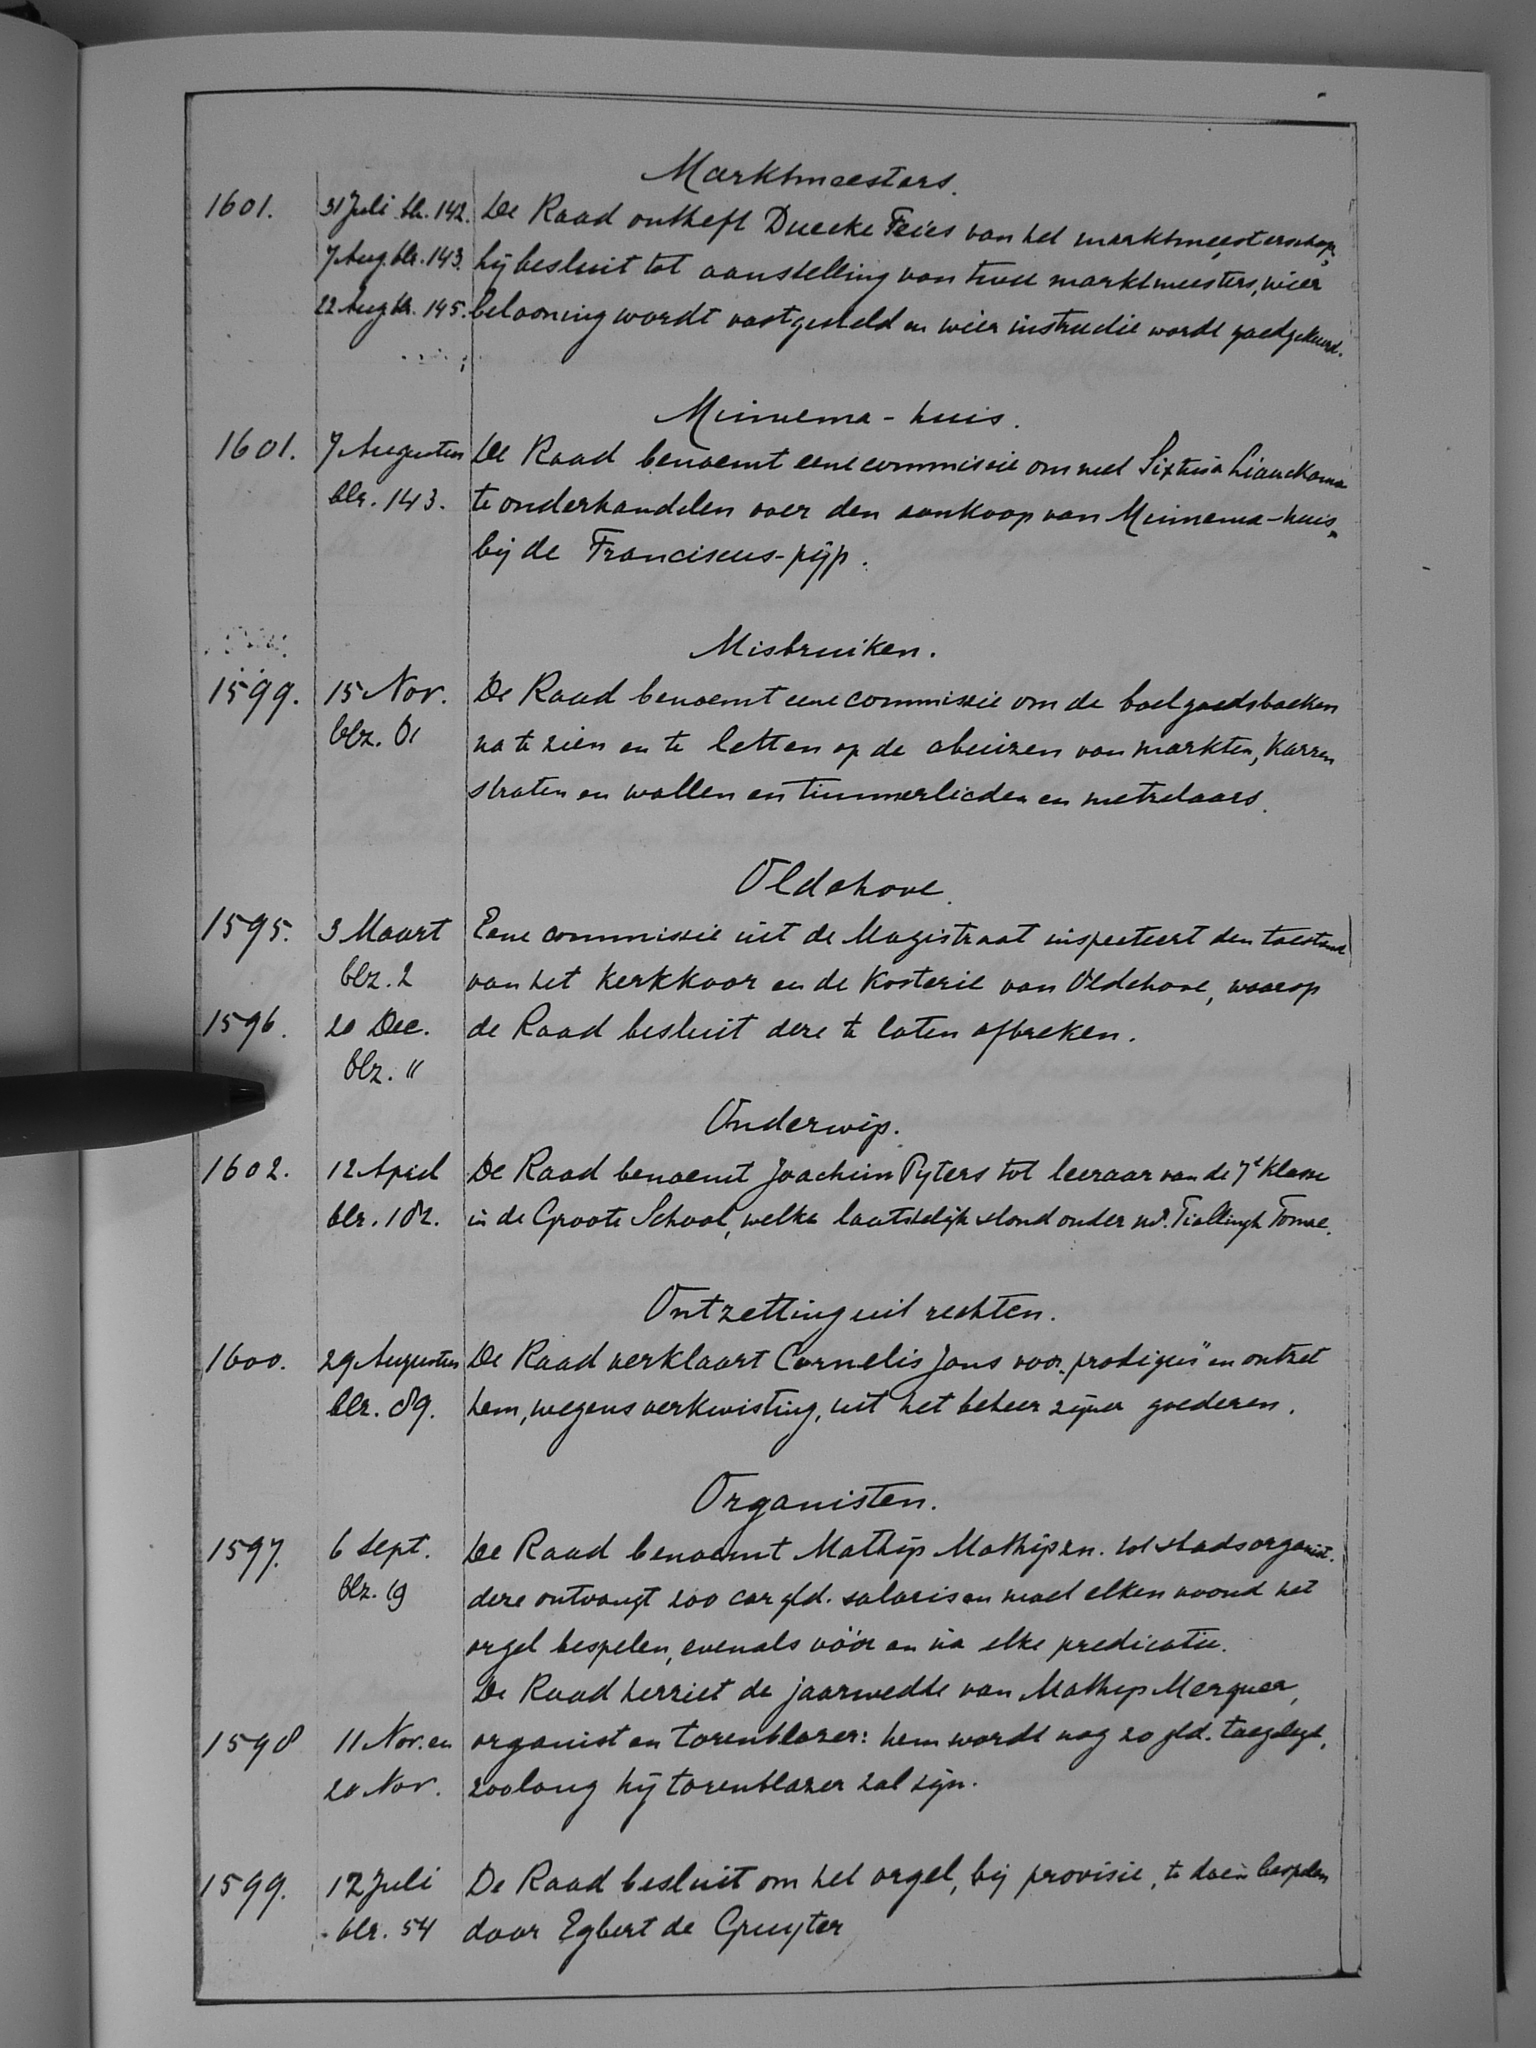 Marktmeesters.
1601. 31 Juli blz. 142. De Raad ontheft Duecke Feies van het marktmeesterschap,
7 Aug. blz. 143. hij besluit tot aanstelling van twee marktmeesters, wier
22 Aug. blz. 145. belooning wordt vastgesteld en wier instructie wordt goedgekeurd.
Minnema-huis.
1601. 7 Augustus De Raad benoemt eene commissie om met Sixtus a Liauckama
blz. 143. te onderhandelen over den aankoop van Minnema-huis,
bij de Franciscus-pijp.
Misbruiken.
1599. 15 Nov. De Raad benoemt eene commissie om de boelgoedsboeken
blz. 61 na te zien en te letten op de abuizen van markten, karren
straten en wallen en timmerlieden en metzelaars.
Oldehove.
1595. 3 Maart Eene commissie uit de Magistraat inspecteert den toestand
blz. 2 van het kerkkoor en de kosterie van Oldehove, waarop
1596. 20 Dec. de Raad besluit deze te laten afbreken.
blz. 11
Onderwijs.
1602. 12 April De Raad benoemt Joachim Pyters tot leeraar van de 7e klasse
blz. 182. in de Groote School, welke laatstelijk stond onder Mr. Tiallingh Tomae.
Ontzetting uit rechten.
1600. 29 Augustus De Raad verklaart Cornelis Jans voor „prodigus" en ontzet
blz. 89. hem, wegens verkwisting, uit het beheer zijner goederen.
Organisten.
1597. 6 Sept. De Raad benoemt Mathijs Mathijszn. tot stadsorganist.
blz. 19 deze ontvangt 200 car gld. salaris en moet elken avond het
orgel bespelen, evenals vóór en na elke predicatie.
De Raad herziet de jaarwedde van Mathys Merquer,
1598 11 Nov. en organist en torenblazer: hem wordt nog 20 gld. toegelegd,
20 Nov. zoolang hij torenblazer zal zijn.
1599. 12 Juli De Raad besluit om het orgel, bij provisie, te doen bespelen
blz. 54 door Egbert de Gruyter